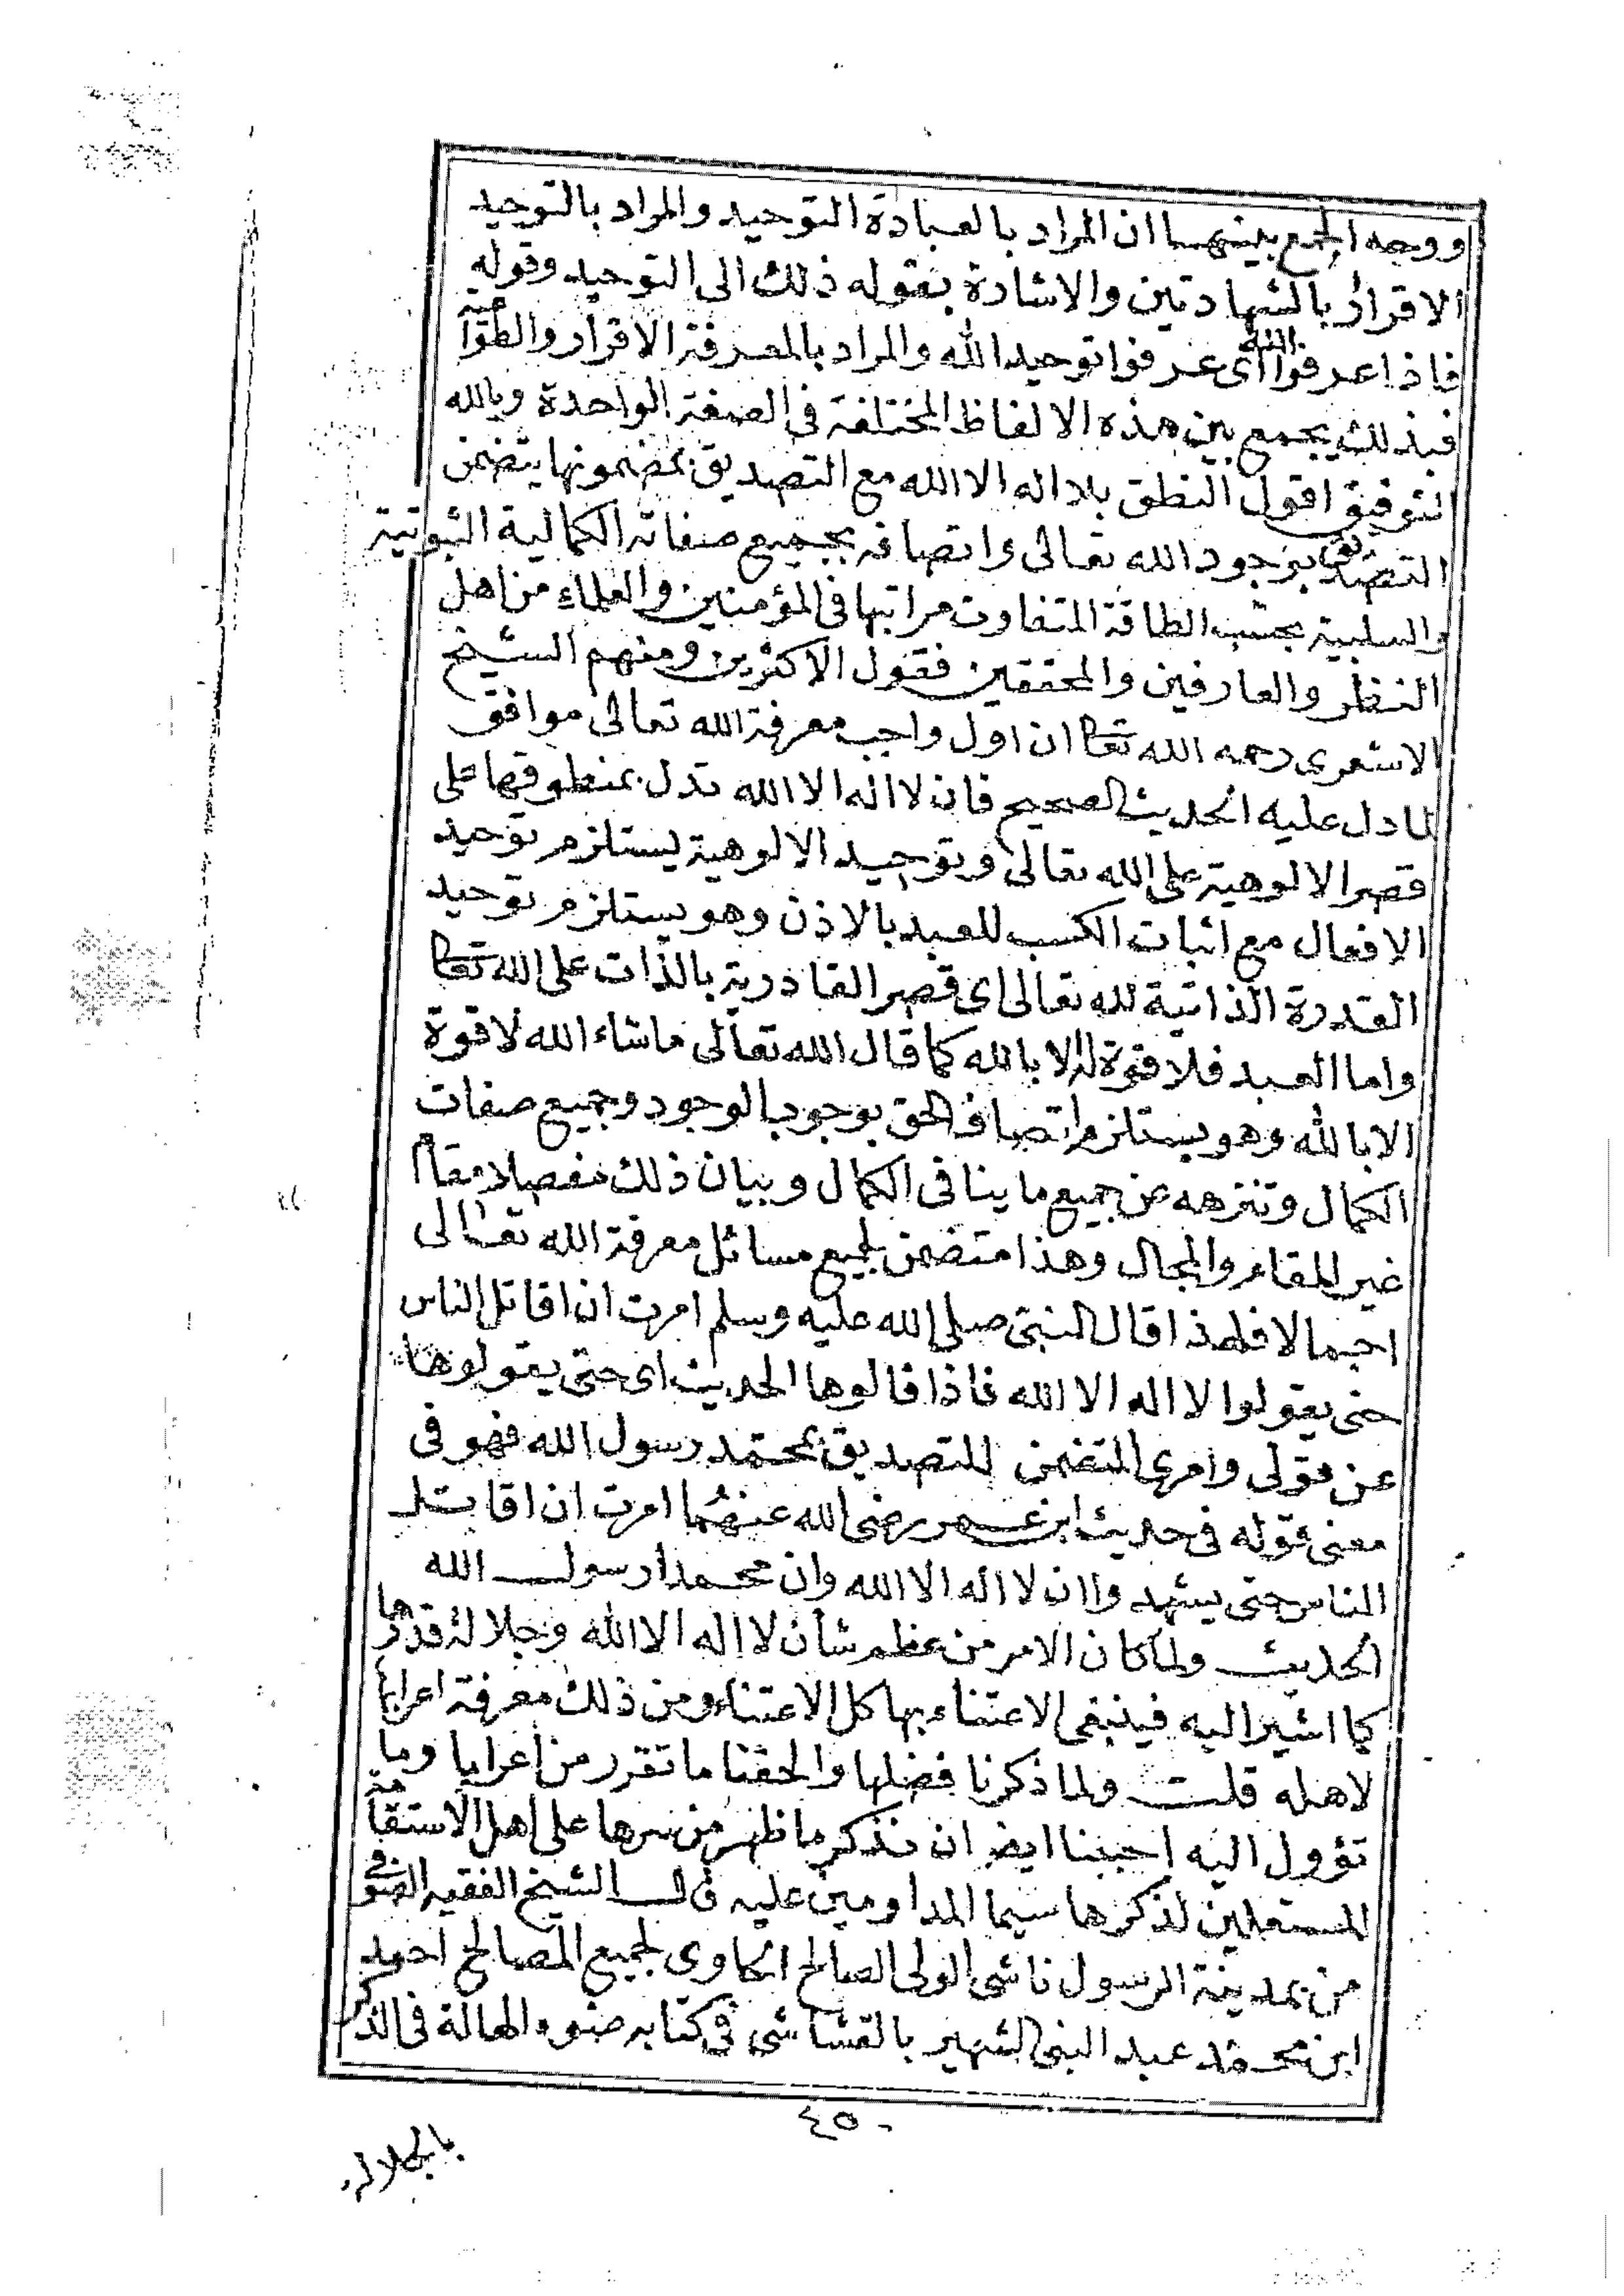 ووجه الجمع بينهما ان المراد بالعبادة التوحيد والمراد بالتوحيد
الاقرار بالشهادتين والاشارة بقوله ذلك الى التوحيد وقوله
فاذا عرفوا الله اى عرفوا توحيد الله والمراد بالمعرفة الاقرار والطواعية
فبذلك يجمع بين هذه الالفاظ المختلفة فى الصفة الواحدة وبالله
التوفيق اقول النطق بلا اله الا الله مع التصديق بمضمونها يتضمن
التصديق بوجود الله تعالى واتصافه بجميع صفاته الكمالية الثبوتية
والسلبية بحسب الطاقة المتفاوت مراتبها فى المؤمنين والعلماء من اهل
النظر والعارفين والمحققين فقول الاكثرين ومنهم الشيخ
الاشعرى رحمه الله تعا ان اول واجب معرفة الله تعالى موافق
لما دل عليه الحديث الصحيح فان لا اله الا الله تدل بمنطوقها على
قصر الالوهية على الله تعالى وتوحيد الالوهية يستلزم توحيد
الافعال مع اثبات الكسب للعبد بالاذن وهو يستلزم توحيد
القدرة الذاتية لله تعالى اى قصر القادرية بالذات على الله تعا
واما العبد فلا قوة له الا بالله كما قال الله تعالى ماشاء الله لا قوة
الا بالله وهو يستلزم اتصاف الحق بوجوب الوجود وجميع صفات
الكمال وتنزهه عن جميع ما ينافى الكمال وبيان ذلك مفصلا مقام
غير المقام والمجال وهذا متضمن لجميع مسائل معرفة الله تعالى
اجمالا فلهذا قال النبى صلى الله عليه وسلم امرت ان اقاتل الناس
حتى يقولوا لا اله الا الله فاذا قالوها الحديث اى حتى يقولوها
عن قولى وامرى المتضمن للتصديق بمحمد رسول الله فهو فى
معنى قوله فى حديث ابن عمر رضى الله عنهما امرت ان اقاتل
الناس حتى يشهدوا ان لا اله الا الله وان محمدا رسول الله
الحديث ولما كان الامر من عظم شان لا اله الا الله وجلالة قدرها
كما اشير اليه فينبغى الاعتناء بها كل الاعتناء ومن ذلك معرفة اعرابها
لاهله قلت ولما ذكرنا فضلها والحقنا ما تقرر من اعرابها وما
تؤول اليه احببنا ايضا ان نذكر ما ظهر من سرها على اهل الاستقامة
المستعملين لذكرها سيما المداومين عليه قال الشيخ الفقيه الصوفى
من بمدينة الرسول ناشى الولى الصالح الحاوى لجميع المصالح احمد
ابن محمد عبد النبى الشهير بالقشاشى فى كتابه ضوء الهالة فى الذكر
٤٥٠
بالجلالة